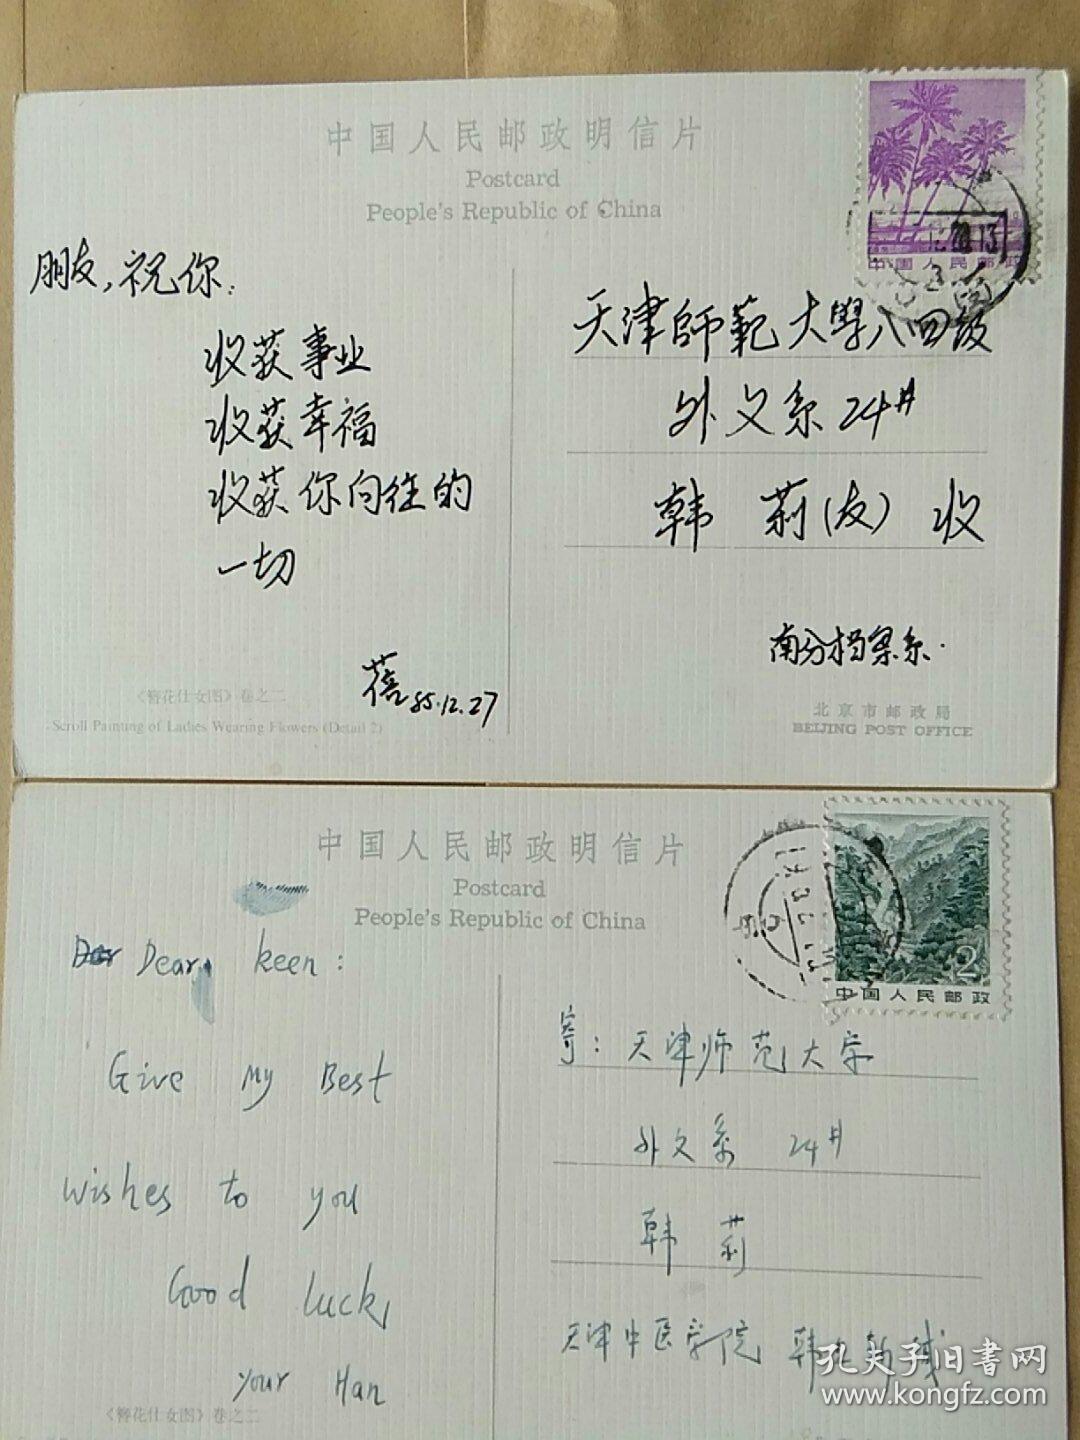 中国人民邮政明信片
Postcard
People's Republic of China
中国人民邮政
朋友，祝你：
收获事业
收获幸福
收获你向往的
一切
蓓 85.12.27
《簪花仕女图》卷之二
Scroll Painting of Ladies Wearing Flowers (Detail 2)
天津師範大學八四级
外文系24#
韩 莉(友) 收
南分档案系.
北京市邮政局
BEIJING POST OFFICE
中国人民邮政明信片
Postcard
People's Republic of China
2
中国人民邮政
Dear keen:
Give My Best
wishes to you
Good luck,
your Han
《簪花仕女图》卷之二
寄：天津师范大学
外文系 24#
韩 莉
天津中医学院 韩
孔夫子旧书网
www.kongfz.com